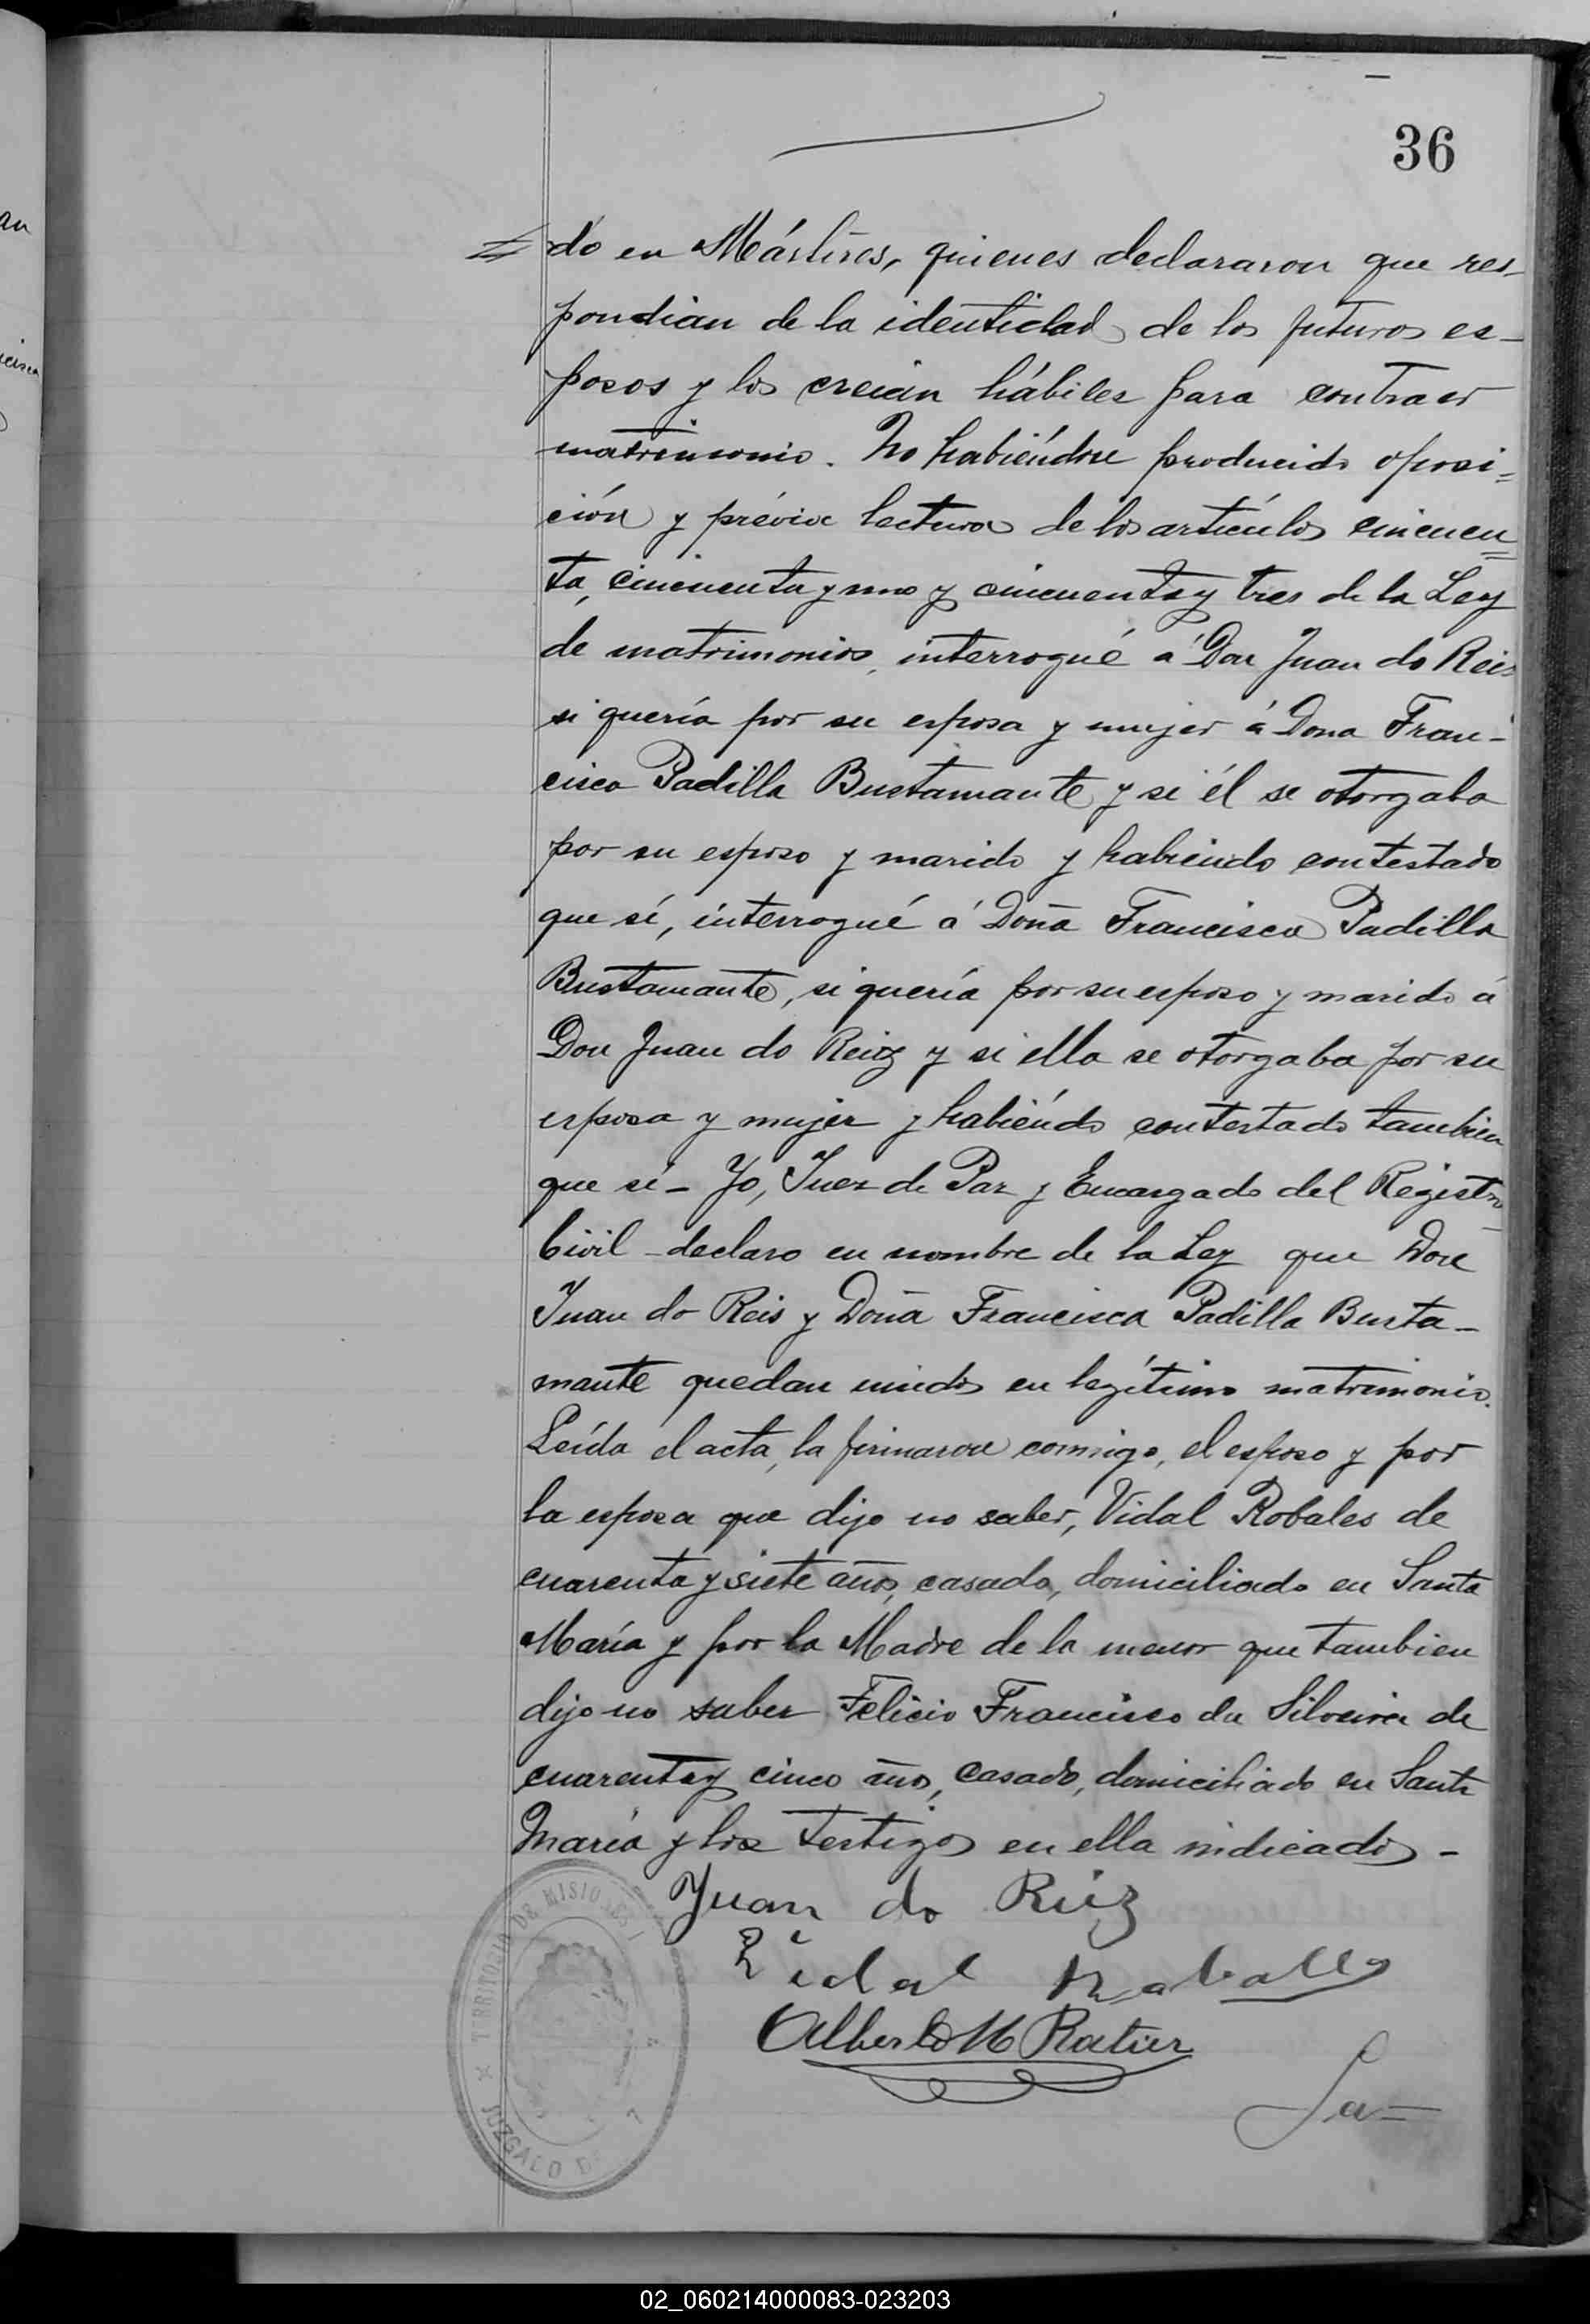 36
an
dó en Mártires, quienes declararon que res-
pondian de la identidad de los futuros es-
posos y los creían hábiles para contraer
matrimonio. No habiéndose producido oposi=
ción y prévia lectura de los artículos cincuen=
ta, cincuenta y uno y cincuenta y tres de la Ley
de matrimonios, interrogué á Don Juan do Reis
si quería por su esposa y mujer á Dona Fran-
cisca Padilla Bustamante y si él se otorgaba
por su esposo y marido y habiendo contestado
que sí, interrogué á Doña Francisca Padilla
Bustamante, si quería por su esposo y marido á
Don Juan do Reiz y si ella se otorgaba por su
esposa y mujer y habiéndo contestado tambien
que sí - Yo, Juez de Paz y Encargado del Registro
Civil - declaro en nombre de la Ley que Don
Juan do Reis y Doña Francisca Padilla Busta-
mante quedan unidos en legítimo matrimonio.
Leída el acta, la firmaron conmigo, el esposo y por
la esposa que dijo no saber, Vidal Robales de
cuarenta y siete años, casado, domiciliado en Santa
María y por la Madre de la menor que tambien
dijo no saber Felicio Francisco da Silveira de
cuarenta y cinco años, casado, domiciliado en Santa
María y los testigos en ella indicados -
Juan do Riiz
Vidal Raballes
Alberto M Ratier
La=
TERRITORIO DE MISIONES
JUZGADO DE
02_060214000083-023203